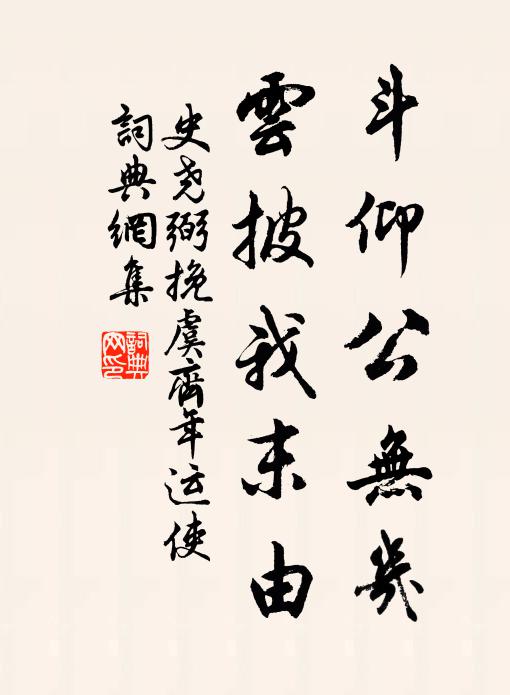 斗仰公無幾
雲披我末由
史尧弼挽虞齊年运使
詞典網集
詞典
网印